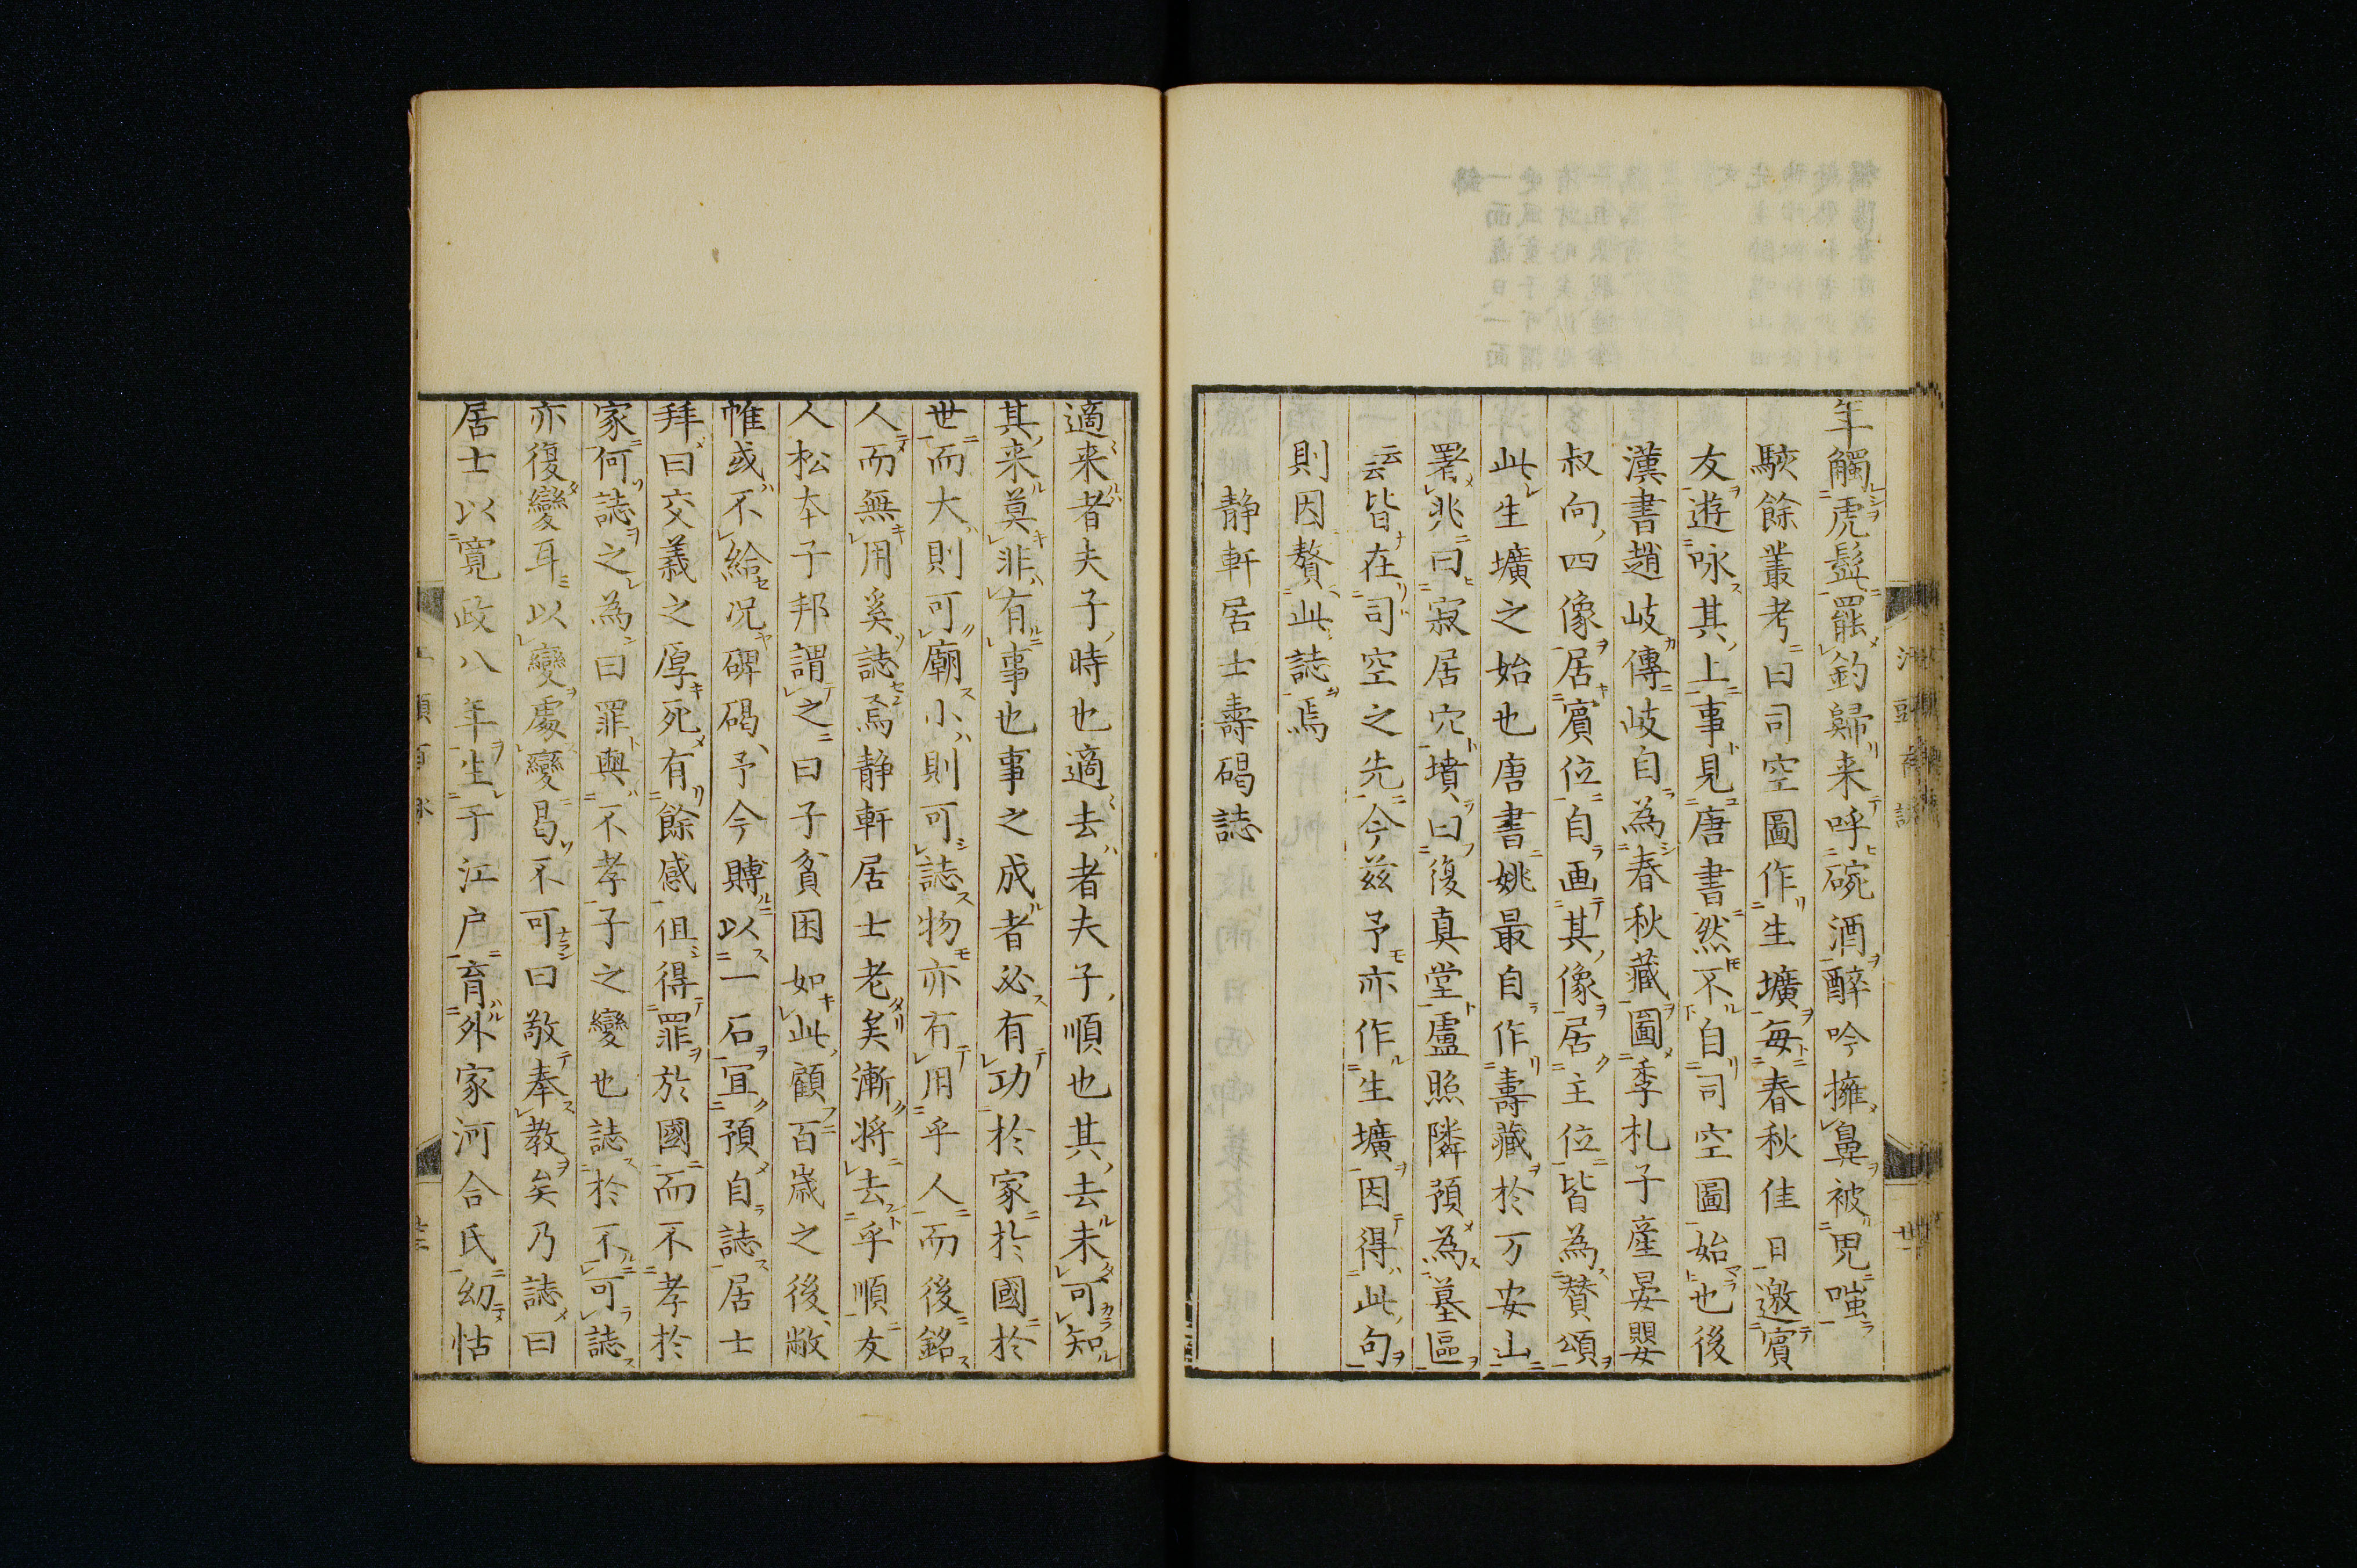 年觸虎髭罷釣歸来呼碗酒醉吟擁鼻被児嗤
駮餘叢考曰司空圖作生壙毎春秋佳日邀賓
友遊咏其上事見唐書然不自司空圖始也後
漢書趙岐傳岐自為春秋藏圖季札子産晏嬰
叔向四像居賓位自画其像居主位皆為賛頌
此生壙之始也唐書姚最自作壽藏於万安山
署兆曰寂居穴墳曰復真堂盧照隣預為墓區
云云皆在司空之先今兹予亦作生壙因得此句
則因贅此誌焉
静軒居士壽碣誌
適来者夫子時也適去者夫子順也其去未可知
其来莫非有事也事之成者必有功於家於國於
世而大則可廟小則可誌物亦有用乎人而後銘
人而無用奚誌焉静軒居士老矣漸将去乎順友
人松本子邦謂之曰子貧困如此顧百歳之後敝
帷或不給况碑碣予今賻以一石宜預自誌居士
拜曰交義之厚死有餘感但得罪於國而不孝於
家何誌之為曰罪與不孝子之變也誌於不可誌
亦復變耳以變處變曷不可曰敬奉教矣乃誌曰
居士以寛政八年生于江戸育外家河合氏幼怙